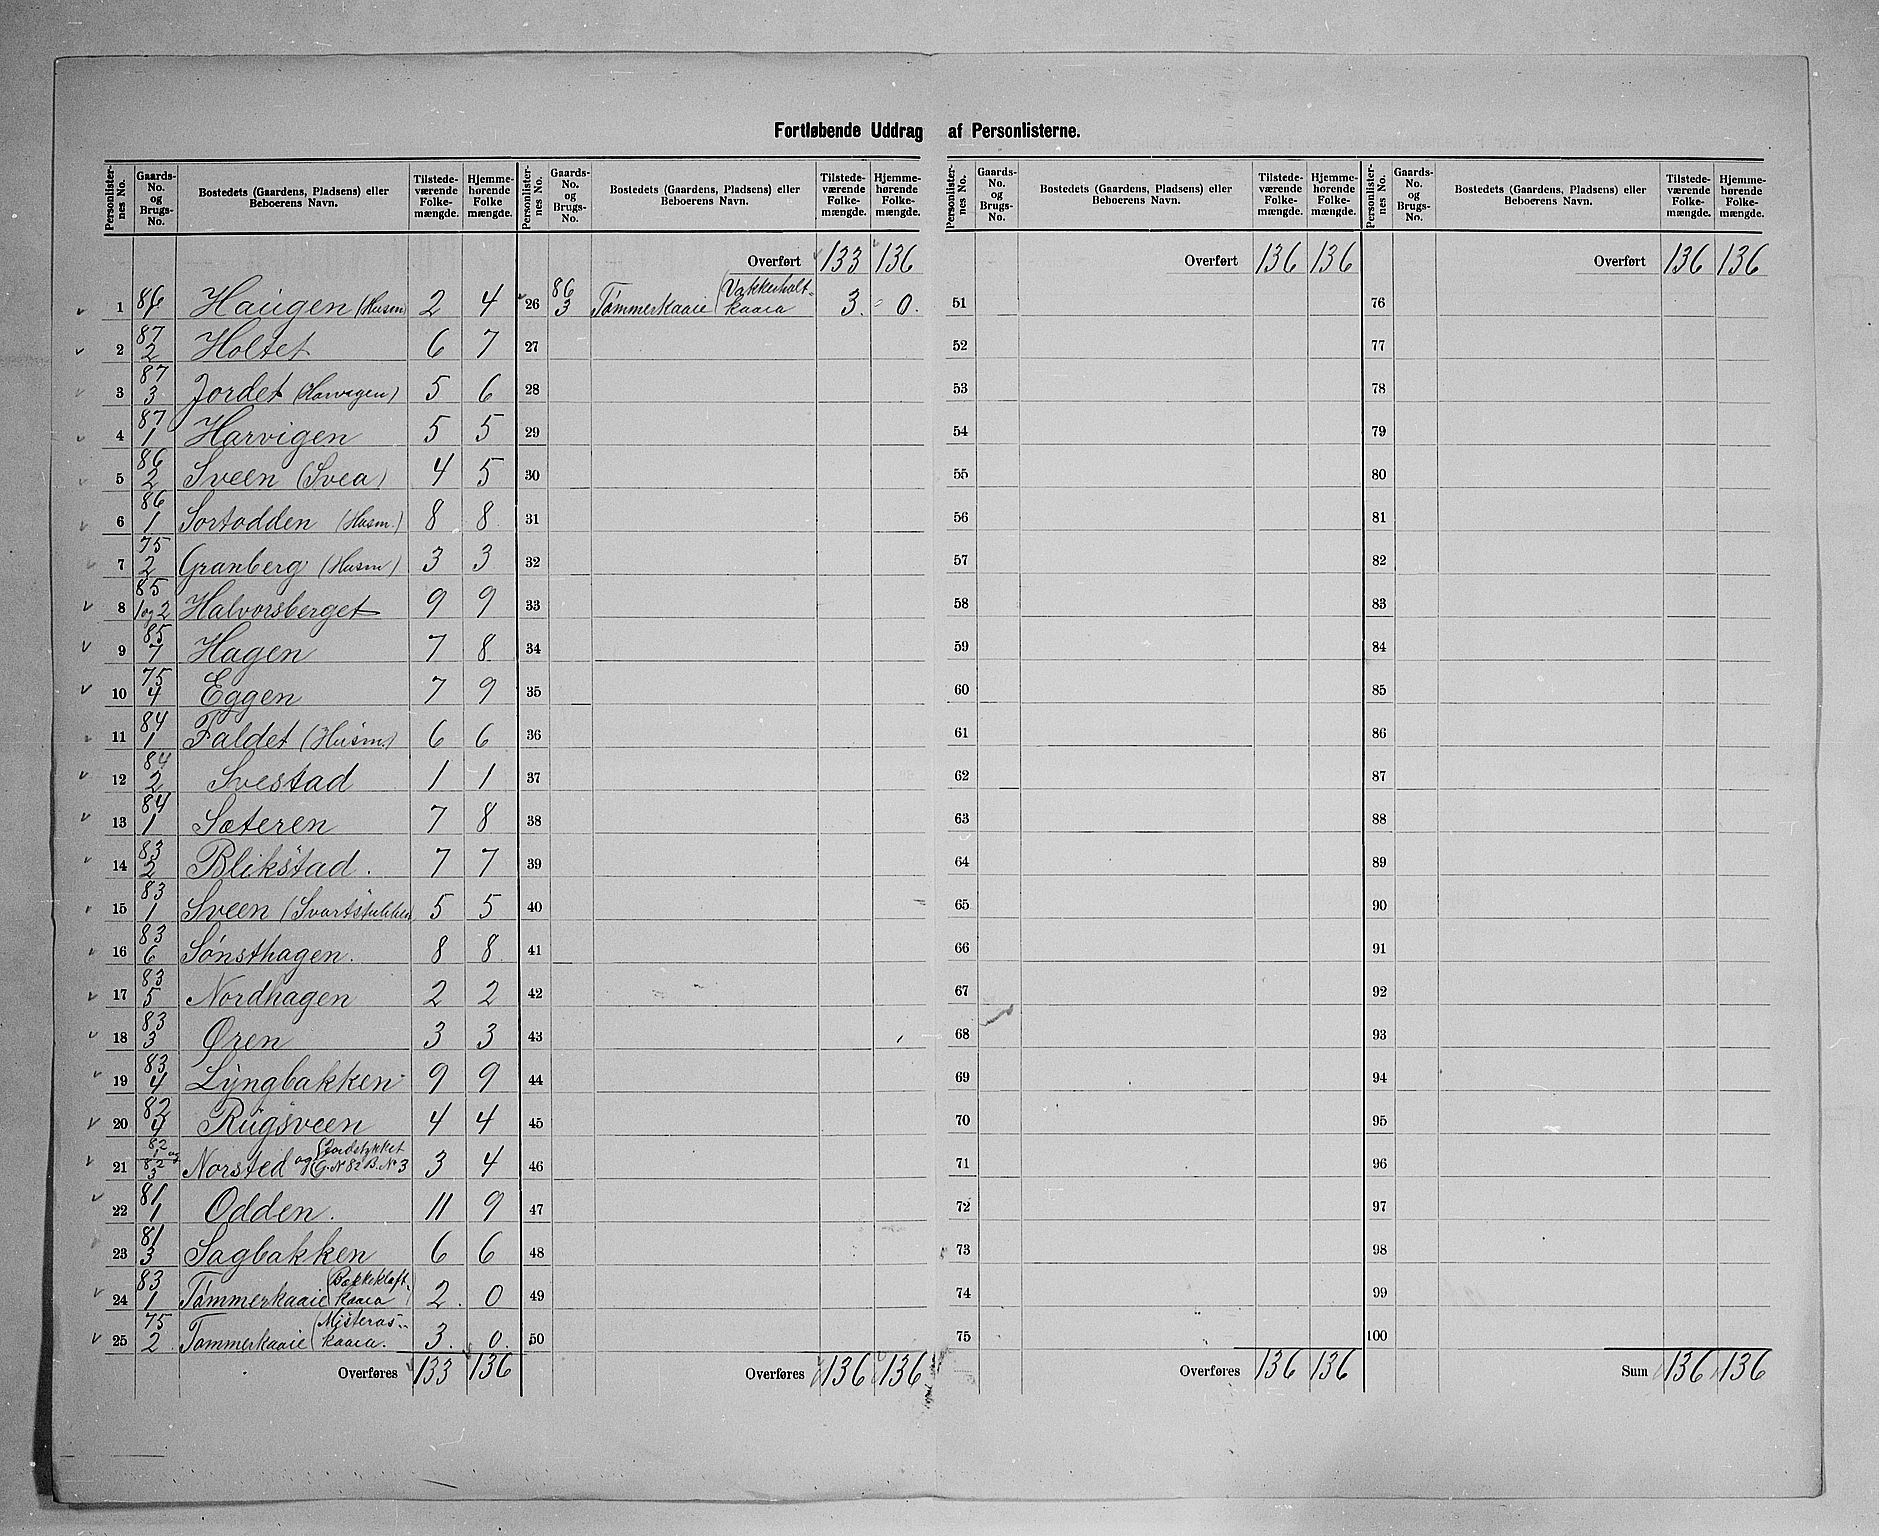 Fortløbende Uddrag af Personlisterne.
Personlisternes No. | Gaards-No. og Brugs-No. | Bostedets (Gaardens, Pladsens) eller Beboerens Navn. | Tilstedeværende Folkemængde. | Hjemmehørende Folkemængde.
1 | 86 | Haugen (Husm) | 2 | 4
2 | 87 2 | Holtet | 6 | 7
3 | 87 3 | Jordet (Harvigen) | 5 | 6
4 | 87 1 | Harvigen | 5 | 5
5 | 86 2 | Sveen (Svea) | 4 | 5
6 | 86 1 | Sortodden (Husm.) | 8 | 8
7 | 75 2 | Granberg (Husm) | 3 | 3
8 | 85 1 og 2 | Halvorsberget | 9 | 9
9 | 85 7 | Hagen | 7 | 8
10 | 75 4 | Eggen | 7 | 9
11 | 84 1 | Faldet (Husm) | 6 | 6
12 | 84 2 | Svestad | 1 | 1
13 | 84 1 | Sæteren | 7 | 8
14 | 83 2 | Blikstad. | 7 | 7
15 | 83 1 | Sveen (Svartstukken | 5 | 5
16 | 83 6 | Sønsthagen. | 8 | 8
17 | 83 5 | Nordhagen | 2 | 2
18 | 83 3 | Øren | 3 | 3
19 | 83 4 | Lyngbakken | 9 | 9
20 | 82 4 | Rugsveen | 4 | 4
21 | 82 1 og 82 3 | Norsted og (Jordstykket G. N 82 B. No 3 | 3 | 4
22 | 81 1 | Odden. | 11 | 9
23 | 81 3 | Sagbakken | 6 | 6
24 | 83 1 | Tømmerkoaie (Bækkekløft-koaia) | 2. | 0
25 | 75 2. | Tømmerkoaie (Misteraas-koaia. | 3. | 0.
Overføres | 133 | 136
Personlisternes No. | Gaards-No. og Brugs-No. | Bostedets (Gaardens, Pladsens) eller Beboerens Navn. | Tilstedeværende Folkemængde. | Hjemmehørende Folkemængde.
Overført | 133 | 136
26 | 86 3 | Tømmerkoaie (Vakkerholt-koaia | 3. | 0.
27
28
29
30
31
32
33
34
35
36
37
38
39
40
41
42
43
44
45
46
47
48
49
50
Overføres | 136 | 136
Personlisternes No. | Gaards-No. og Brugs-No. | Bostedets (Gaardens, Pladsens) eller Beboerens Navn. | Tilstedeværende Folkemængde. | Hjemmehørende Folkemængde.
Overført | 136 | 136
51
52
53
54
55
56
57
58
59
60
61
62
63
64
65
66
67
68
69
70
71
72
73
74
75
Overføres | 136 | 136
Personlisternes No. | Gaards-No. og Brugs-No. | Bostedets (Gaardens, Pladsens) eller Beboerens Navn. | Tilstedeværende Folkemængde. | Hjemmehørende Folkemængde.
Overført | 136 | 136
76
77
78
79
80
81
82
83
84
85
86
87
88
89
90
91
92
93
94
95
96
97
98
99
100
Sum | 136 | 136